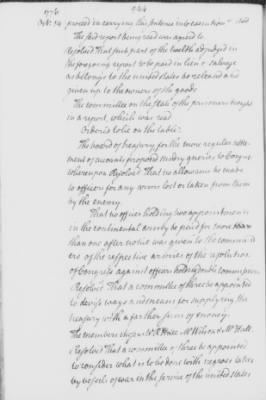 1776
944
Octr. 14
proceed in carrying this sentence into execution
The said report being read was agreed to
Resolved That such part of the twelfth adjudged in
the foregoing report to be paid in lieu of salvage
as belongs to the united states be released and
given up to the owners of the goods
The committee on the state of the prisoners brought
in a report, which was read
Ordered to lie on the table
The board of treasury for the more regular settle
ment of accounts proposed sundry queries to Congress
whereupon Resolved That no allowance be made
to officers for any arms lost or taken from them
by the enemy
That no officer holding two appointments
in the continental army be paid for more than
than one after notice was given to the command
ers of the respective armies of the resolution
of Congress against officers holding double commissions
Resolved That a committee of three be appointed
to devise ways and means for supplying the
treasury with a farther sum of money
The members chosen Mr Wilson & Mr Hall
Resolved That a committee of three be appointed
to consider what is to be done with negroes taken
by vessels of war in the service of the united states